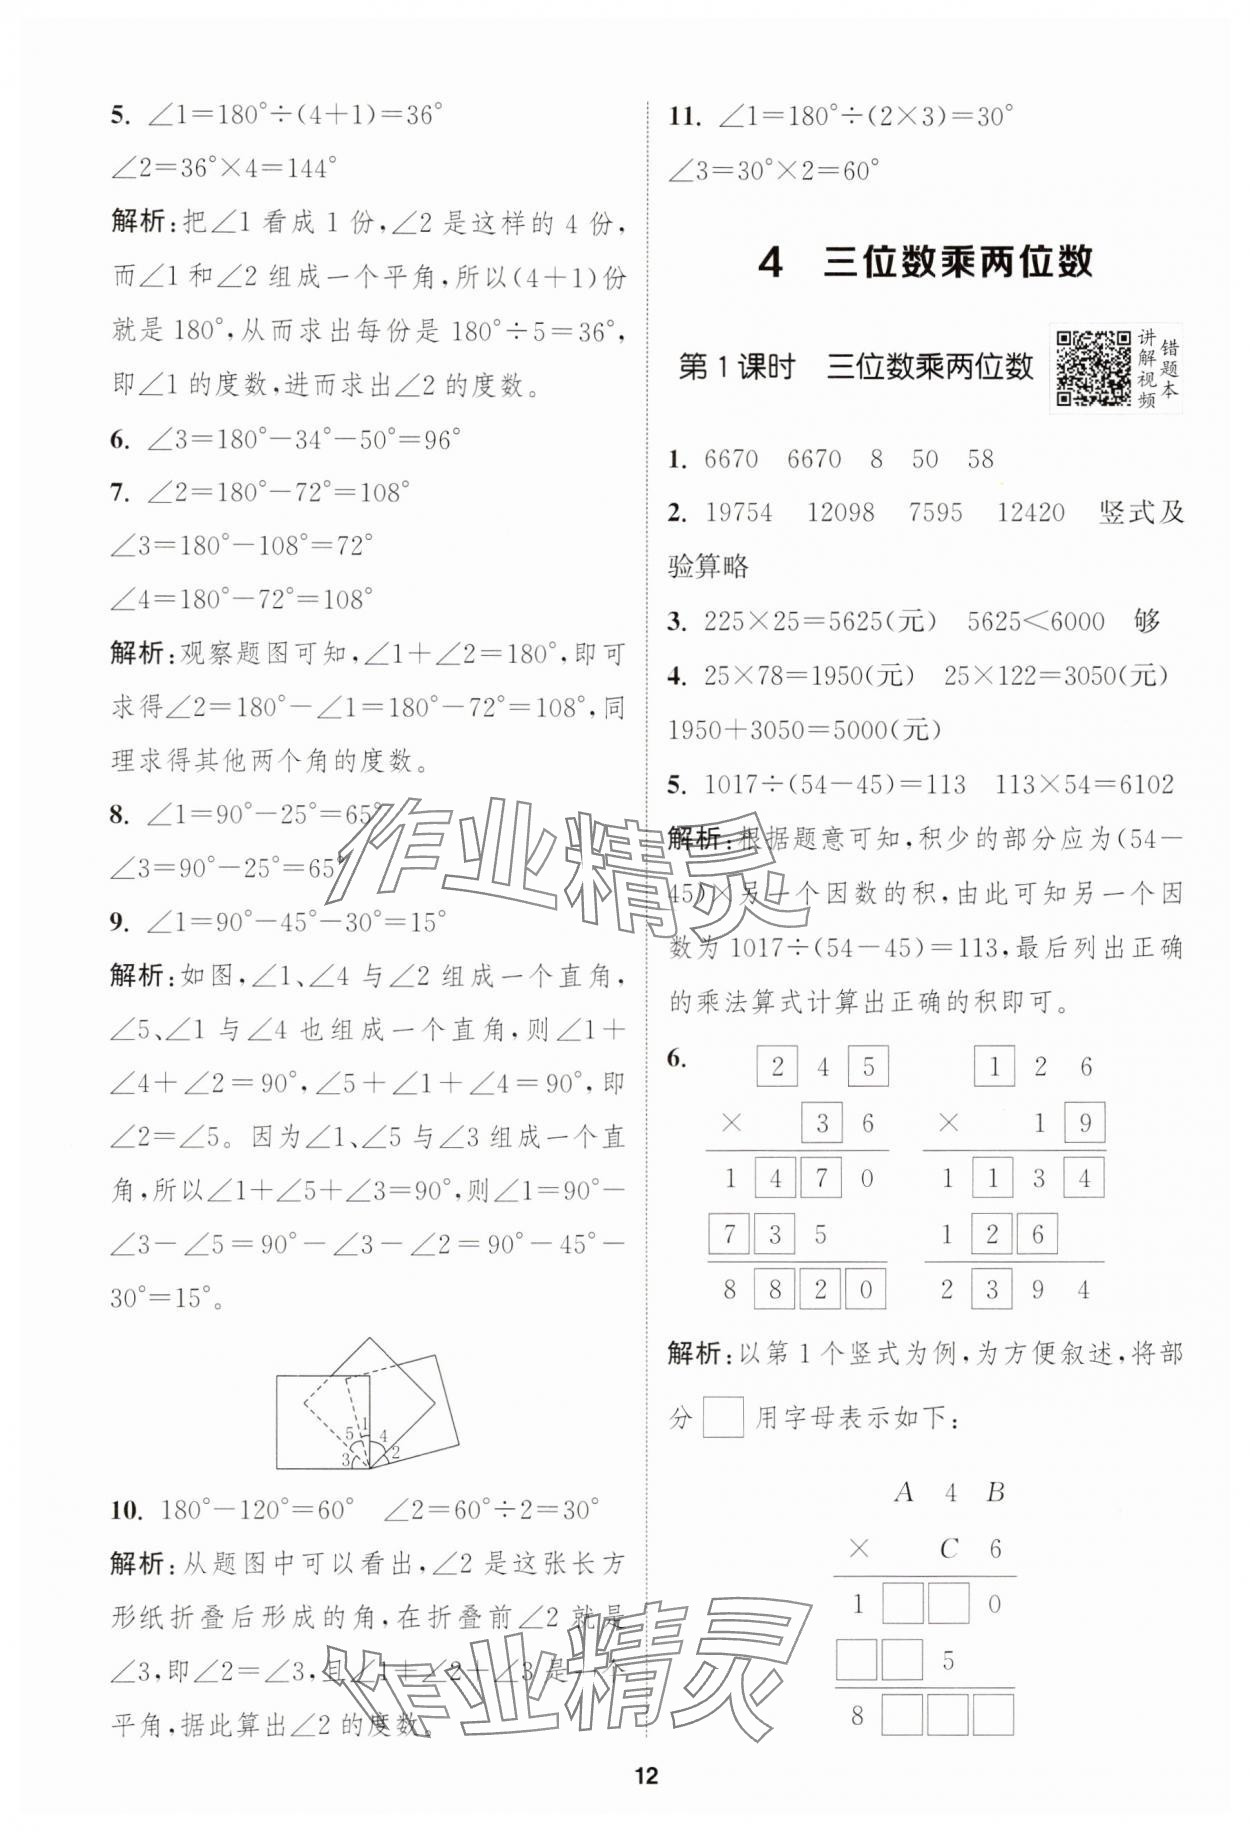 5. ∠1=180°÷(4+1)=36°
∠2=36°×4=144°
解析:把∠1看成1份,∠2是这样的4份,
而∠1和∠2组成一个平角,所以(4+1)份
就是180°,从而求出每份是180°÷5=36°,
即∠1的度数,进而求出∠2的度数。
6. ∠3=180°-34°-50°=96°
7. ∠2=180°-72°=108°
∠3=180°-108°=72°
∠4=180°-72°=108°
解析:观察题图可知,∠1+∠2=180°,即可
求得∠2=180°-∠1=180°-72°=108°,同
理求得其他两个角的度数。
8. ∠1=90°-25°=65°
∠3=90°-25°=65°
9. ∠1=90°-45°-30°=15°
解析:如图,∠1、∠4与∠2组成一个直角,
∠5、∠1与∠4也组成一个直角,则∠1+
∠4+∠2=90°,∠5+∠1+∠4=90°,即
∠2=∠5。因为∠1、∠5与∠3组成一个直
角,所以∠1+∠5+∠3=90°,则∠1=90°-
∠3-∠5=90°-∠3-∠2=90°-45°-
30°=15°。
5 1 4
3 2
10. 180°-120°=60° ∠2=60°÷2=30°
解析:从题图中可以看出,∠2是这张长方
形纸折叠后形成的角,在折叠前∠2就是
∠3,即∠2=∠3,且∠1+∠2+∠3是一个
平角,据此算出∠2的度数。
11. ∠1=180°÷(2×3)=30°
∠3=30°×2=60°
4 三位数乘两位数
第1课时 三位数乘两位数
讲解视频
错题本
1. 6670 6670 8 50 58
2. 19754 12098 7595 12420 竖式及
验算略
3. 225×25=5625(元) 5625<6000 够
4. 25×78=1950(元) 25×122=3050(元)
1950+3050=5000(元)
5. 1017÷(54-45)=113 113×54=6102
解析:根据题意可知,积少的部分应为(54-
45)×另一个因数的积,由此可知另一个因
数为1017÷(54-45)=113,最后列出正确
的乘法算式计算出正确的积即可。
6. 2 4 5 1 2 6
× 3 6 × 1 9
1 4 7 0 1 1 3 4
7 3 5 1 2 6
8 8 2 0 2 3 9 4
解析:以第1个竖式为例,为方便叙述,将部
分□用字母表示如下:
A 4 B
× C 6
1 □ □ 0
□ □ 5
8 □ □ □
12
作业精灵
作业精灵